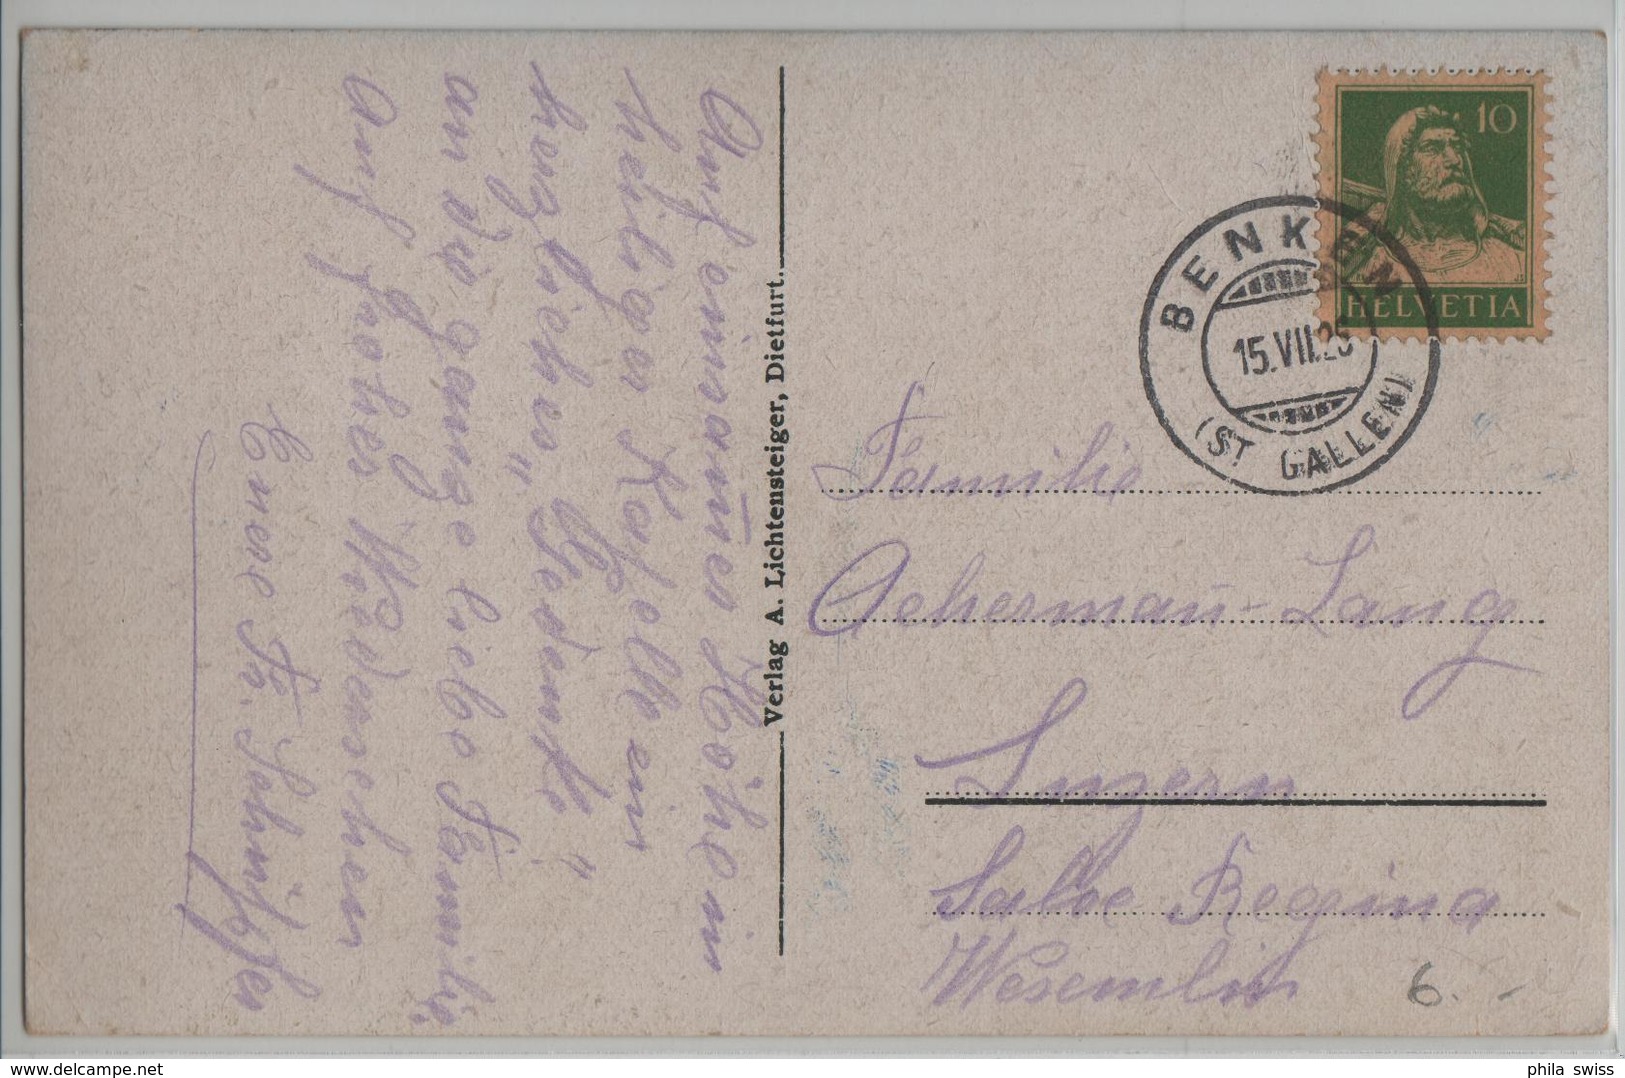 Auf einsamer Höhe in
heiliger Kapelle ein
herzliches „Gedenke"
an die ganze liebe Familie.
Auf frohes Wiedersehen
Eure
Verlag A. Lichtensteiger, Dietfurt.
10
HELVETIA
BENKEN
15.VII.25
(ST GALLEN)
Familie
Achermañ-Lang
Luzern
Salve Regina
Wesemlin
6. -
delcampe.net
phila_swiss